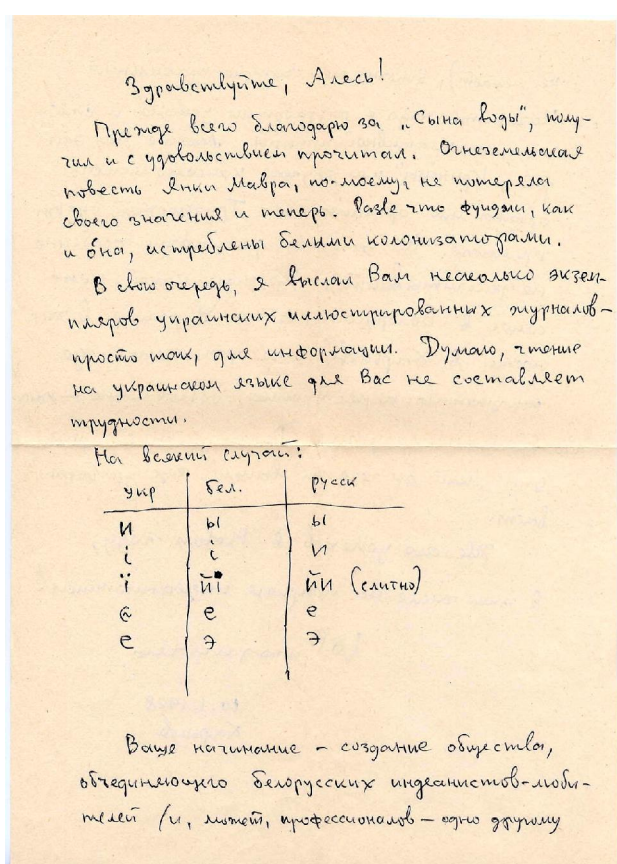 Здравствуйте, Алесь!
Прежде всего благодарю за „Сына воды“, полу-
чил и с удовольствием прочитал. Огнеземельская
повесть Янки Мавра, по-моему, не потеряла
своего значения и теперь. Разве что фуиджи, как
и о́на, истреблены белыми колонизаторами.
В свою очередь, я выслал Вам несколько экзем-
пляров украинских иллюстрированных журналов –
просто так, для информации. Думаю, чтение
на украинском языке для Вас не составляет
трудности.
На всякий случай:
укр бел. русск
и ы ы
і і и
ї йі йи (слитно)
є е е
е э э
Ваше начинание – создание общества,
объединяющего белорусских индеанистов-люби-
телей /и, может, профессионалов – одно другому